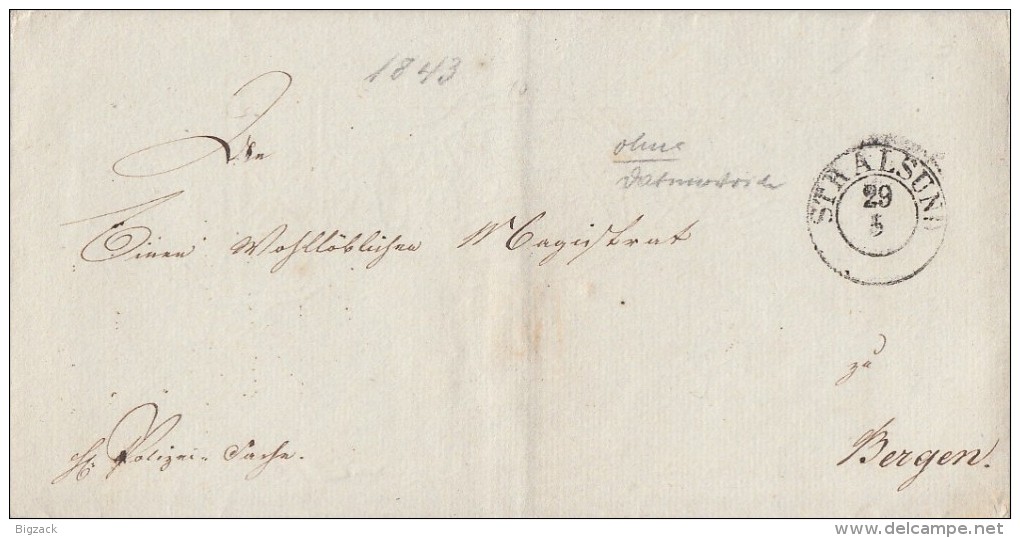 1843
An
ohne
Datumstrich
STRALSUND
29
5
Einen Wohllöblichen Magistrat
zu
Polizei-Sache.
Bergen.
Bigzack
www.delcampe.net